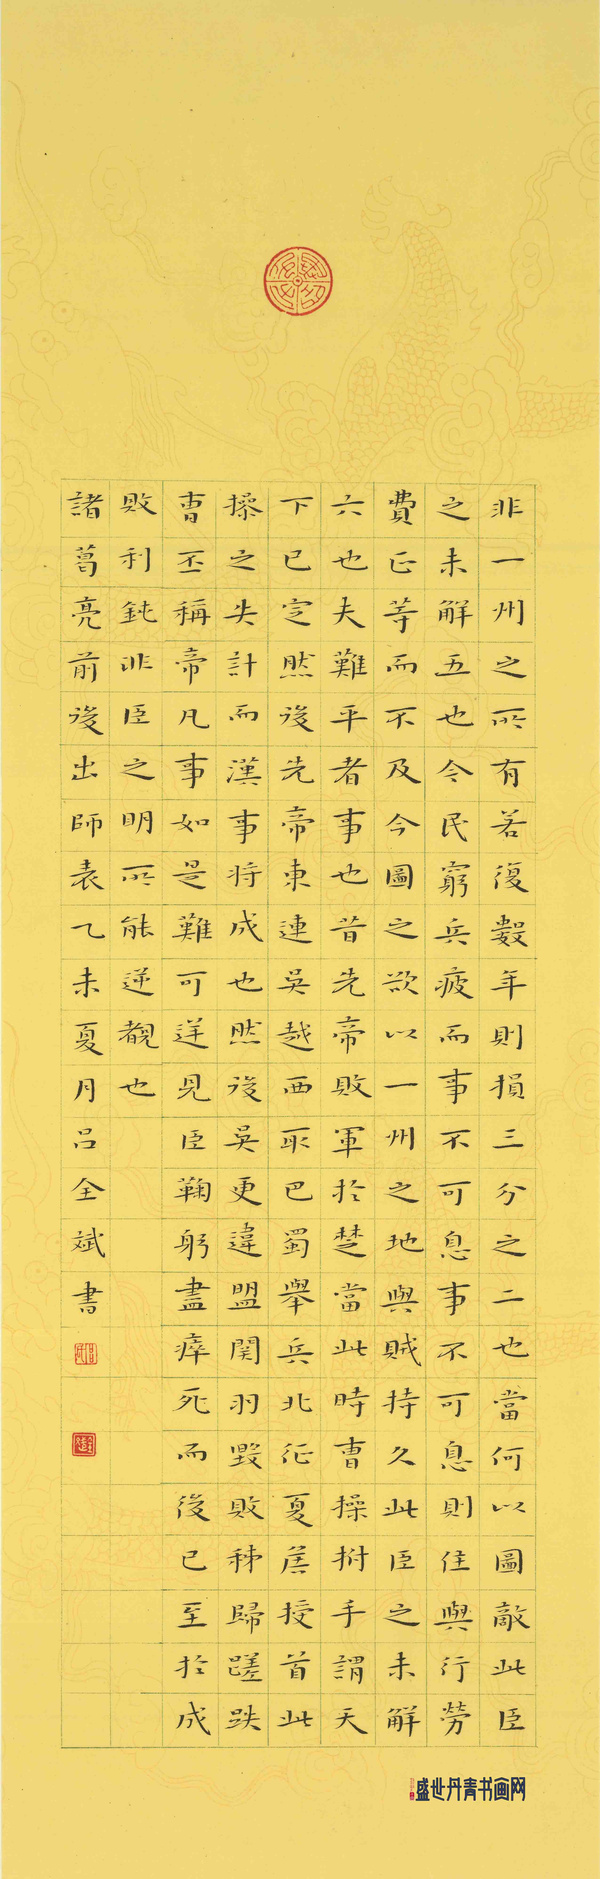 非一州之所有若復數年則損三分之二也當何以圖敵此臣
之未解五也今民窮兵疲而事不可息事不可息則住與行勞
費正等而不及今圖之欲以一州之地與賊持久此臣之未解
六也夫難平者事也昔先帝敗軍於楚當此時曹操拊手謂天
下已定然後先帝東連吳越西取巴蜀舉兵北征夏侯授首此
操之失計而漢事將成也然後吳更違盟関羽毀敗秭歸蹉跌
曹丕稱帝凡事如是難可逆見臣鞠躬盡瘁死而後已至於成
敗利鈍非臣之明所能逆覩也
諸葛亮前後出師表乙未夏月呂全斌書
盛世丹青书画网